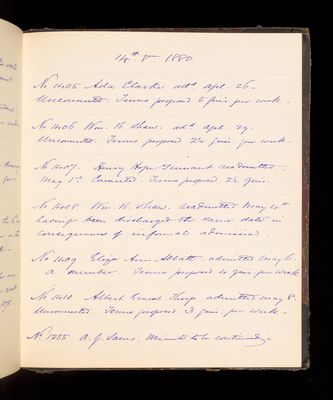 14th V. 1880
No 1405 Ada Clarke adt. Apl. 26.
Unconnected. Terms proposed 5 guis per week.
No 1406 Wm. B. Shaw. adt. Apl. 29.
Unconnected. Terms proposed 2½ guis. per week.
No 1407. Henry Hope Tennant readmitted
May 1st Connected. Terms proposed 2½ guis.
No 1408 Wm. B. Shaw. readmitted May 4th
having been discharged the same date in
consequence of informal admission
No 1409 Eliza Ann Abbott admitted May 6.
a member. Terms proposed 10 guis per week
No 1410 Albert Ernest Thorp admitted May 8.
Unconnected. Terms proposed 3 guis. per week.
No 1255 A. J. Minute to be continued.